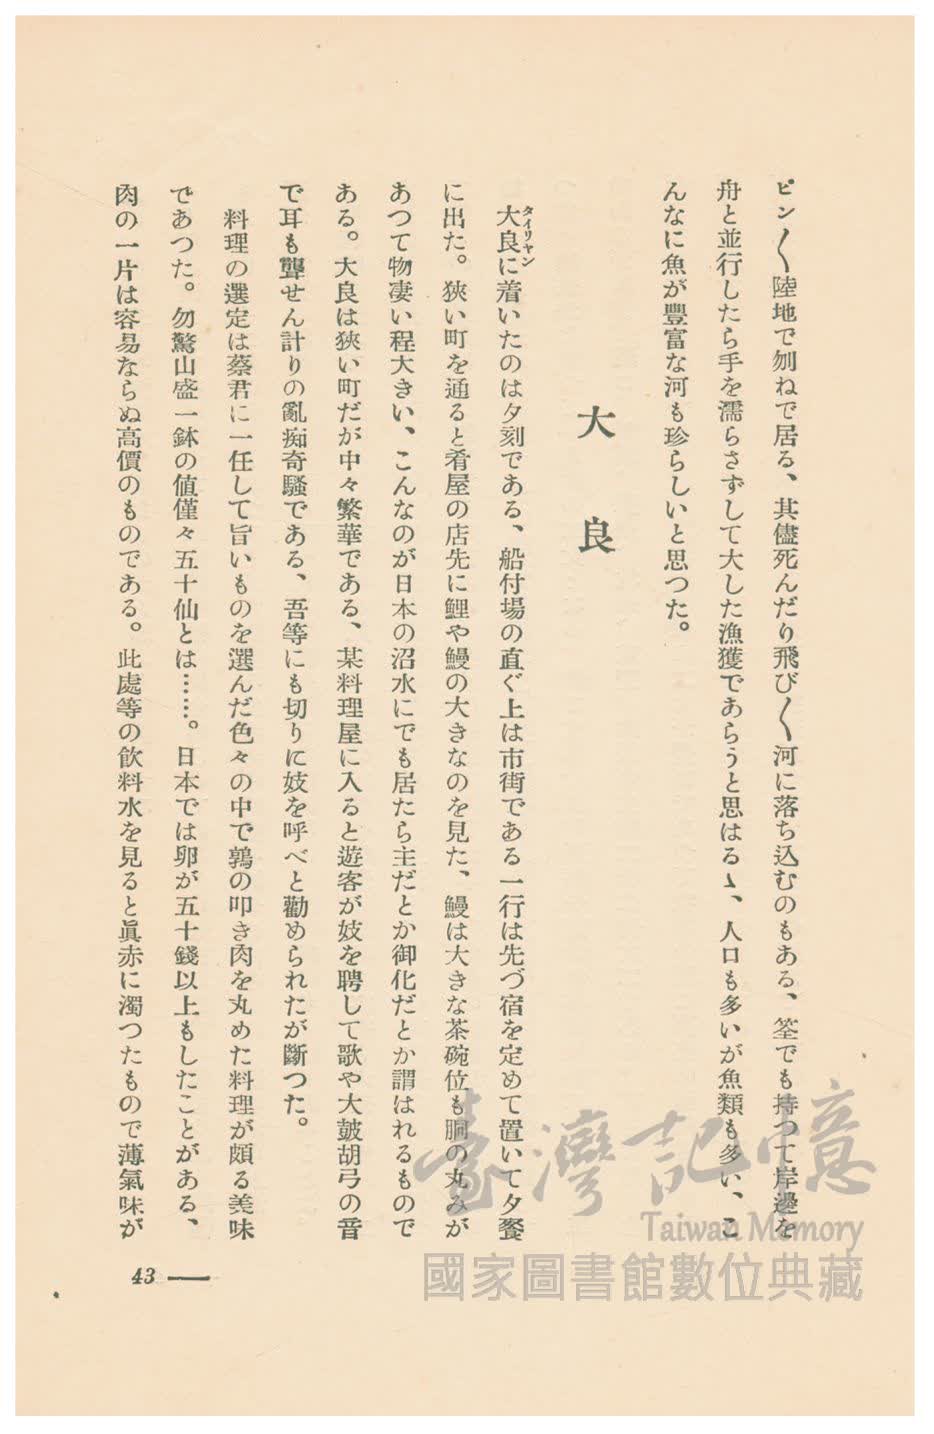 ピン〱陸地で刎ねて居る、其儘死んだり飛び〱河に落ち込むのもある、筌でも持つて岸邊を
舟と並行したら手を濡らさずして大した漁獲であらうと思はるゝ、人口も多いが魚類も多い、こ
んなに魚が豐富な河も珍らしいと思つた。
大良
大良に着いたのは夕刻である、船付場の直ぐ上は市街である一行は先づ宿を定めて置いて夕餐
タイリヤン
に出た。狹い町を通ると肴屋の店先に鯉や鰻の大きなのを見た、鰻は大きな茶碗位も胴の丸みが
あつて物凄い程大きい、こんなのが日本の沼水にでも居たら主だとか御化だとか謂はれるもので
ある。大良は狹い町だが中々繁華である、某料理屋に入ると遊客が妓を聘して歌や大皷胡弓の音
で耳も聾せん計りの亂痴奇騷である、吾等にも切りに妓を呼べと勸められたが斷つた。
料理の選定は蔡君に一任して旨いものを選んだ色々の中で鶉の叩き肉を丸めた料理が頗る美味
であつた。勿驚山盛一鉢の値僅々五十仙とは……。日本では卵が五十錢以上もしたことがある、
肉の一片は容易ならぬ高價のものである。此處等の飮料水を見ると眞赤に濁つたもので薄氣味が
43
臺灣記憶
Taiwan Memory
國家圖書館數位典藏